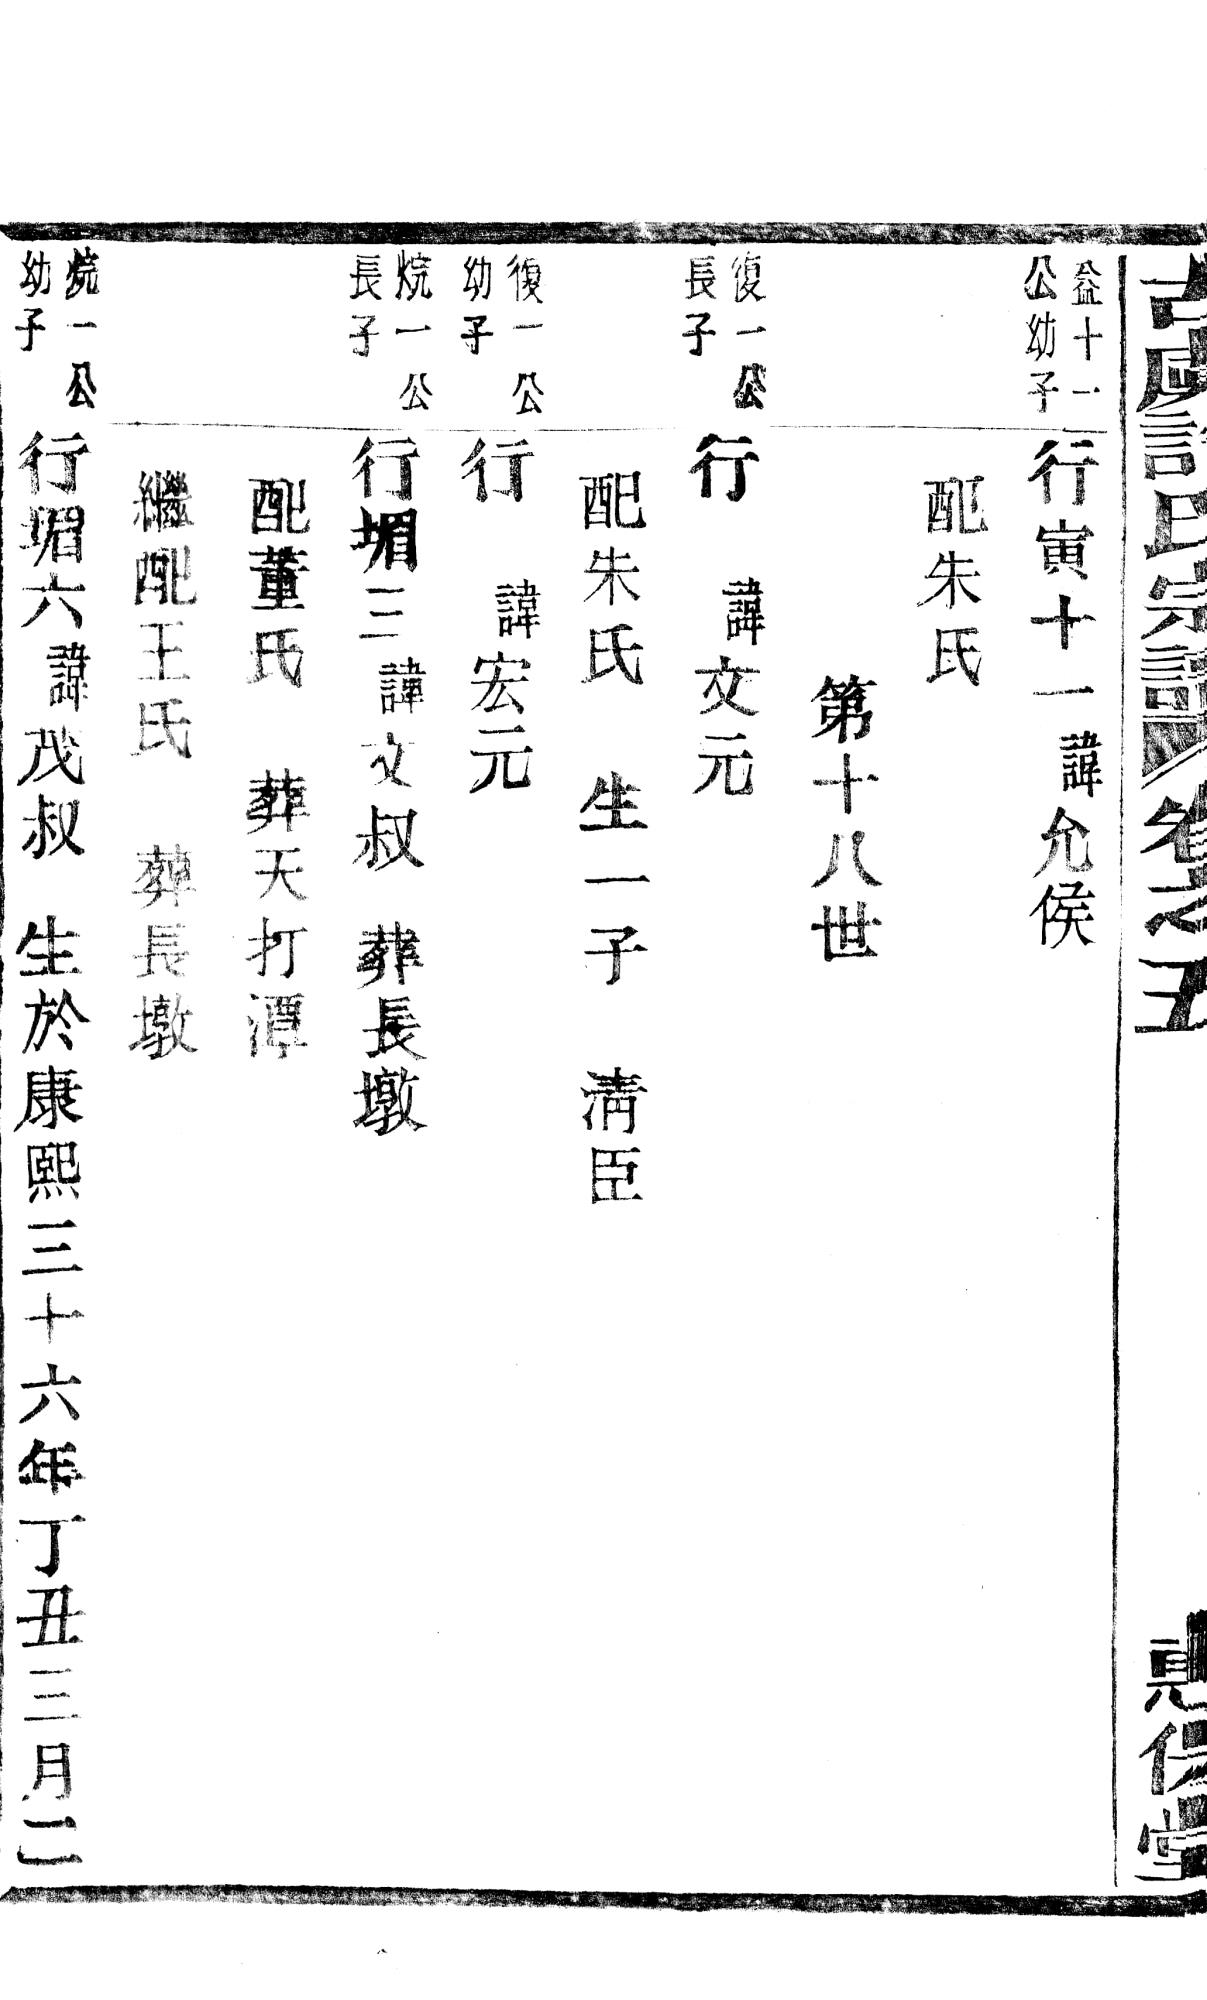 古虞許氏宗譜 卷之五
惠倫堂
益十一公幼子 行寅十一 諱允侯
配朱氏
第十八世
復一公長子 行 諱文元
配朱氏 生一子 淸臣
復一公幼子 行 諱宏元
烷一公長子 行堳三 諱文叔 葬長墩
配董氏 葬天打潭
繼配王氏 葬長墩
烷一公幼子 行堳六 諱茂叔 生於康熙三十六年丁丑三月二